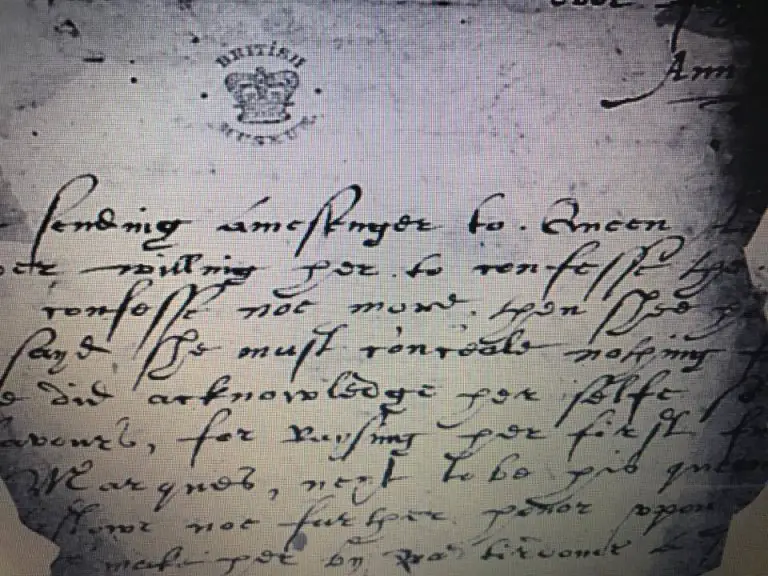 BRITISH
MUSEUM
Ann
sending a messenger to Queen
er willing her to confesse the
confesse noe more, then shee h
sayd she must conceale nothing
e did acknowledge her selfe so
avours, for raysing her first fr
Marques, next to be his queen
stowe noe further honor upon
make her by